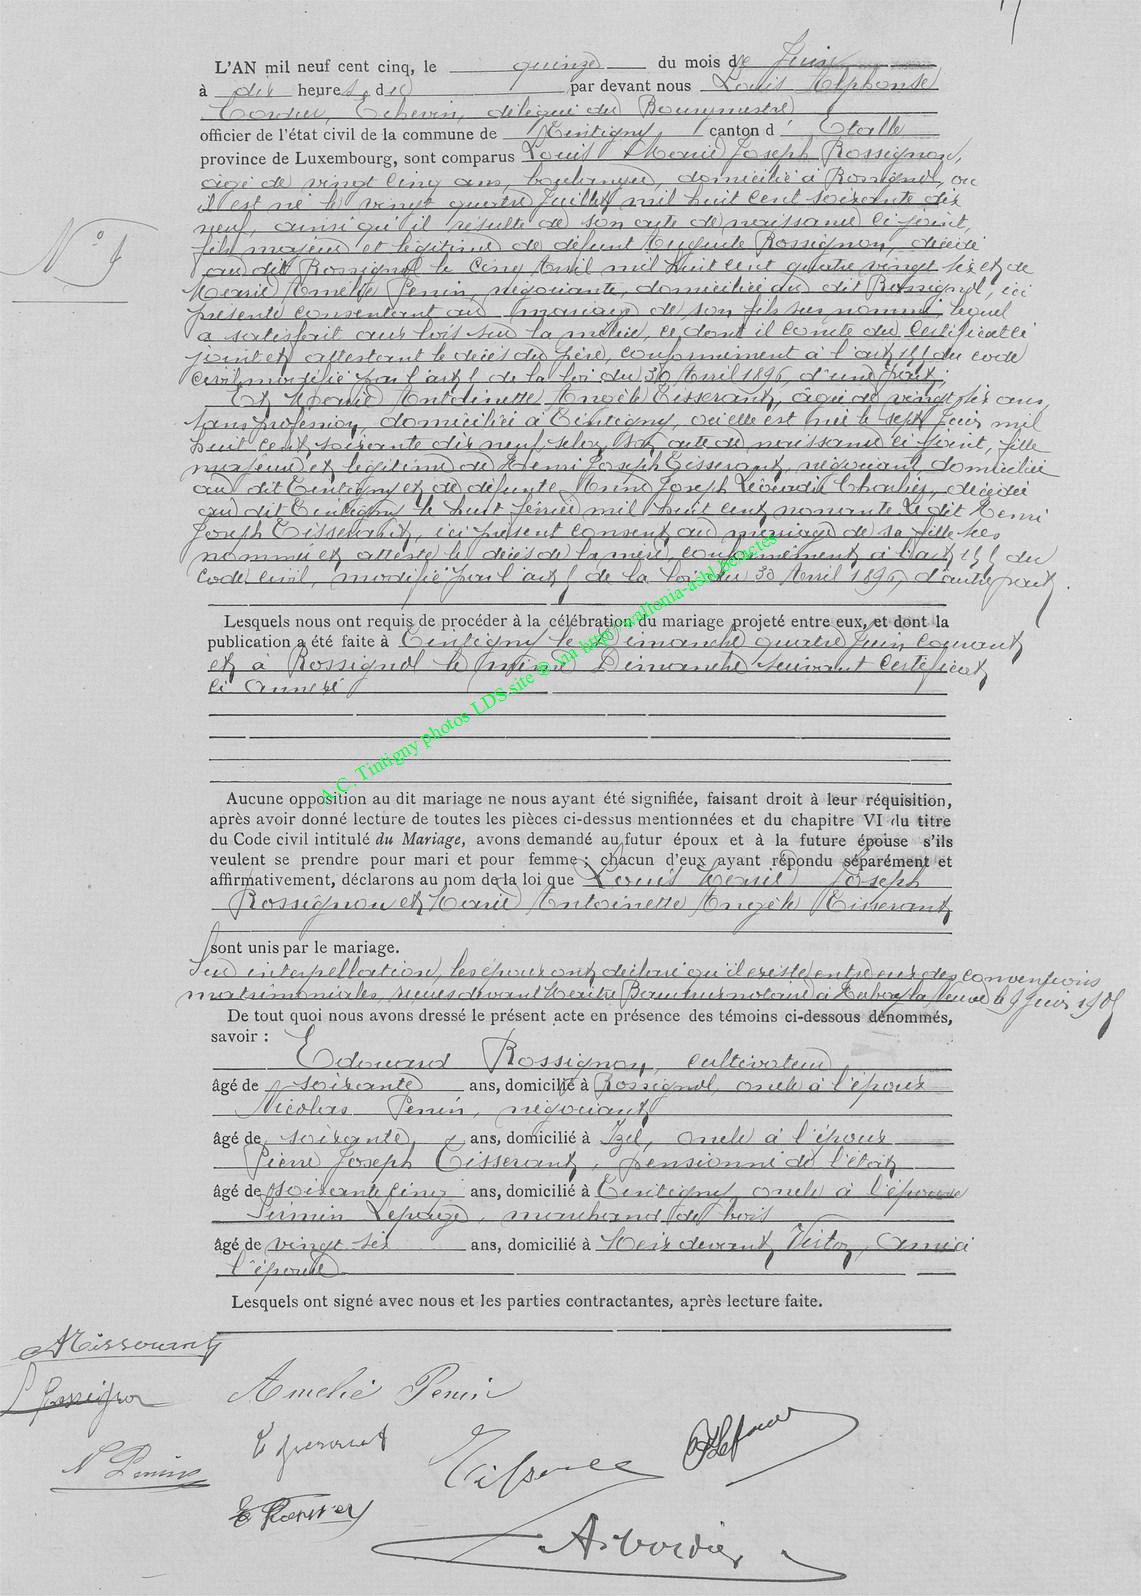 L'AN mil neuf cent cinq, le quinze du mois de Juin
à dix heures, du par devant nous Louis Alphonse
Cordier, Echevin, délégué du Bourgmestre
officier de l'état civil de la commune de Tintigny, canton d' Etalle
province de Luxembourg, sont comparus Louis Marie Joseph Rossignon,
âgé de vingt cinq ans, boulanger, domicilié à Rossignol, où
il est né le vingt quatre Juillet mil huit cent soixante dix
neuf, ainsi qu'il résulte de son acte de naissance ci joint,
N° 7
fils majeur et légitime de défunt Auguste Rossignon, décédé
au dit Rossignol le cinq Avril mil huit cent quatre vingt six et de
Marie Amélie Penin, négociante, domiciliée au dit Rossignol, ici
présente consentant au mariage de son fils sus nommé, lequel
a satisfait aux lois sur la milice, ce dont il conste du certificat ci
joint et attestant le décès du père, conformément à l'art 151 du code
civil modifié par l'art 5 de la loi du 30 Avril 1896, d'une part;
Et Marie Antoinette Angèle Tisserant, âgée de vingt six ans,
sans profession, domiciliée à Tintigny, où elle est née le sept Juin mil
huit cent soixante dix neuf, selon son acte de naissance ci joint, fille
majeure et légitime de Henri Joseph Tisserant, négociant, domicilié
au dit Tintigny et de défunte Anne Joseph Léocadie Charlier, décédée
au dit Tintigny le huit février mil huit cent nonante. Le dit Henri
Joseph Tisserant, ici présent consent au mariage de sa fille sus
nommée et atteste le décès de la mère, conformément à l'art 151 du
Code civil, modifié par l'art 5 de la loi du 30 Avril 1896, d'autre part.
Lesquels nous ont requis de procéder à la célébration du mariage projeté entre eux, et dont la
publication a été faite à Tintigny le Dimanche quatre Juin courant
et à Rossignol le même Dimanche suivant certificat
ci annexé
A.C. Tintigny photos LDS site © vm http://wallonia-asbl.be/actes
Aucune opposition au dit mariage ne nous ayant été signifiée, faisant droit à leur réquisition,
après avoir donné lecture de toutes les pièces ci-dessus mentionnées et du chapitre VI du titre
du Code civil intitulé du Mariage, avons demandé au futur époux et à la future épouse s'ils
veulent se prendre pour mari et pour femme ; chacun d'eux ayant répondu séparément et
affirmativement, déclarons au nom de la loi que Louis Marie Joseph
Rossignon et Marie Antoinette Angèle Tisserant
sont unis par le mariage.
Sur interpellation, les époux ont déclaré qu'il existe entre eux des conventions
matrimoniales, reçues devant Maître notaire à Habay la Neuve le 9 Juin 1905
De tout quoi nous avons dressé le présent acte en présence des témoins ci-dessous dénommés,
savoir :
Edouard Rossignon, cultivateur
âgé de soixante ans, domicilié à Rossignol, oncle à l'époux
Nicolas Penin, négociant
âgé de soixante ans, domicilié à Izel, oncle à l'époux
Pierre Joseph Tisserant, pensionné de l'état
âgé de soixante cinq ans, domicilié à Tintigny, oncle à l'épouse
Firmin Lepage, marchand de bois
âgé de vingt six ans, domicilié à Meix devant Virton, ami à
l'épouse
Lesquels ont signé avec nous et les parties contractantes, après lecture faite.
A Tisserant
L Rossignon
Amélie Penin
N Penin